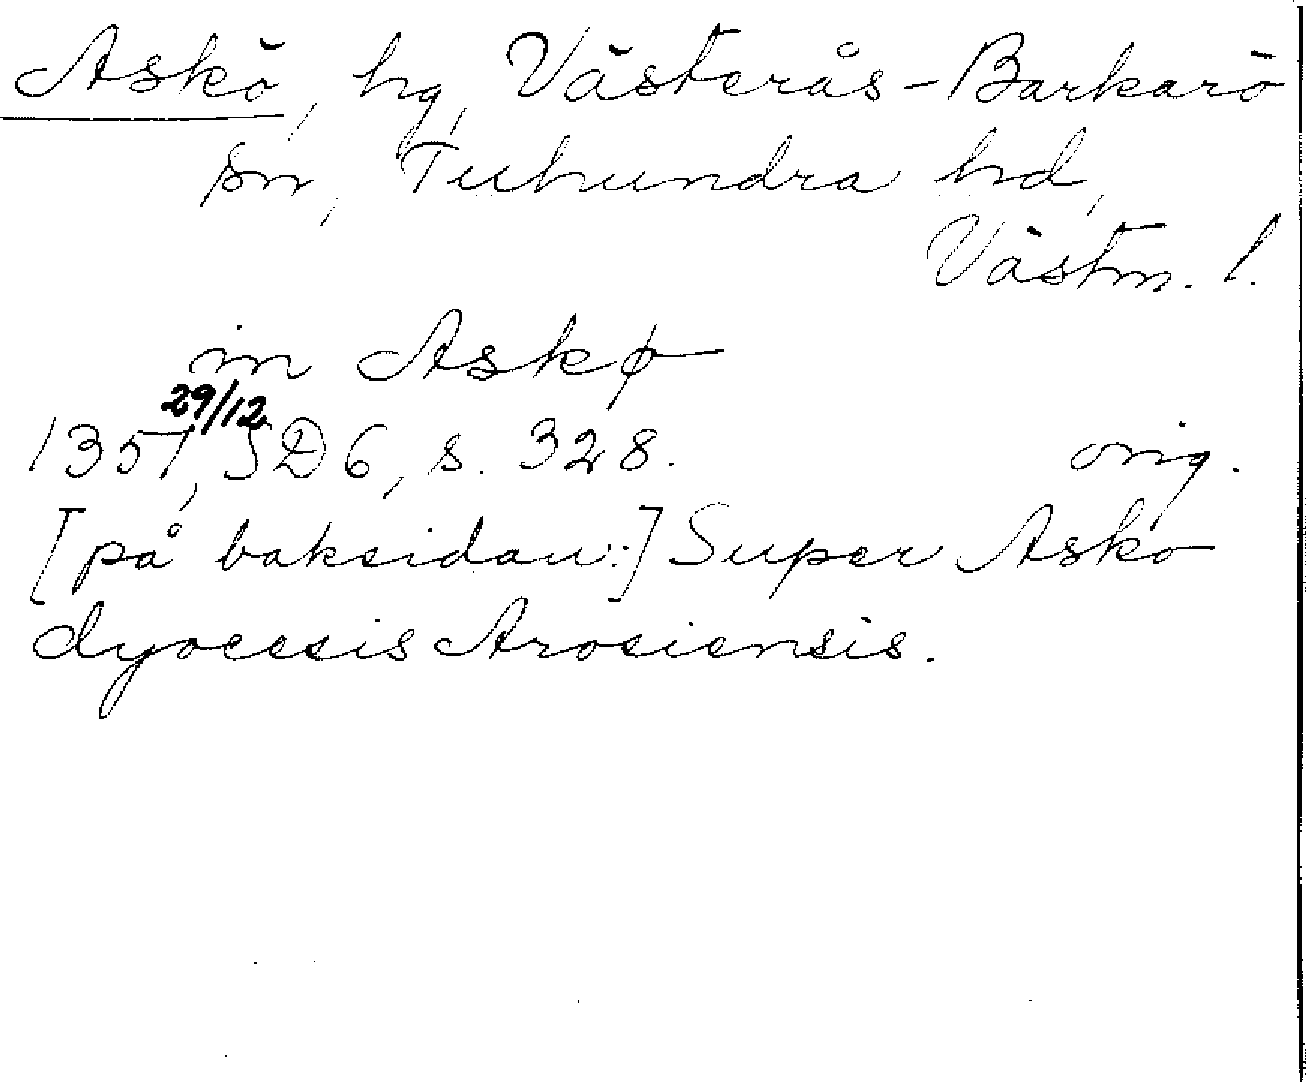 Askö, hg, Västerås-Barkarö
sn, Tuhundra hd,
Västm. l.
in Askø
29/12
1351, SD 6, s. 328. orig.
[på baksidan:] Super Asko
dyocesis Arosiensis.